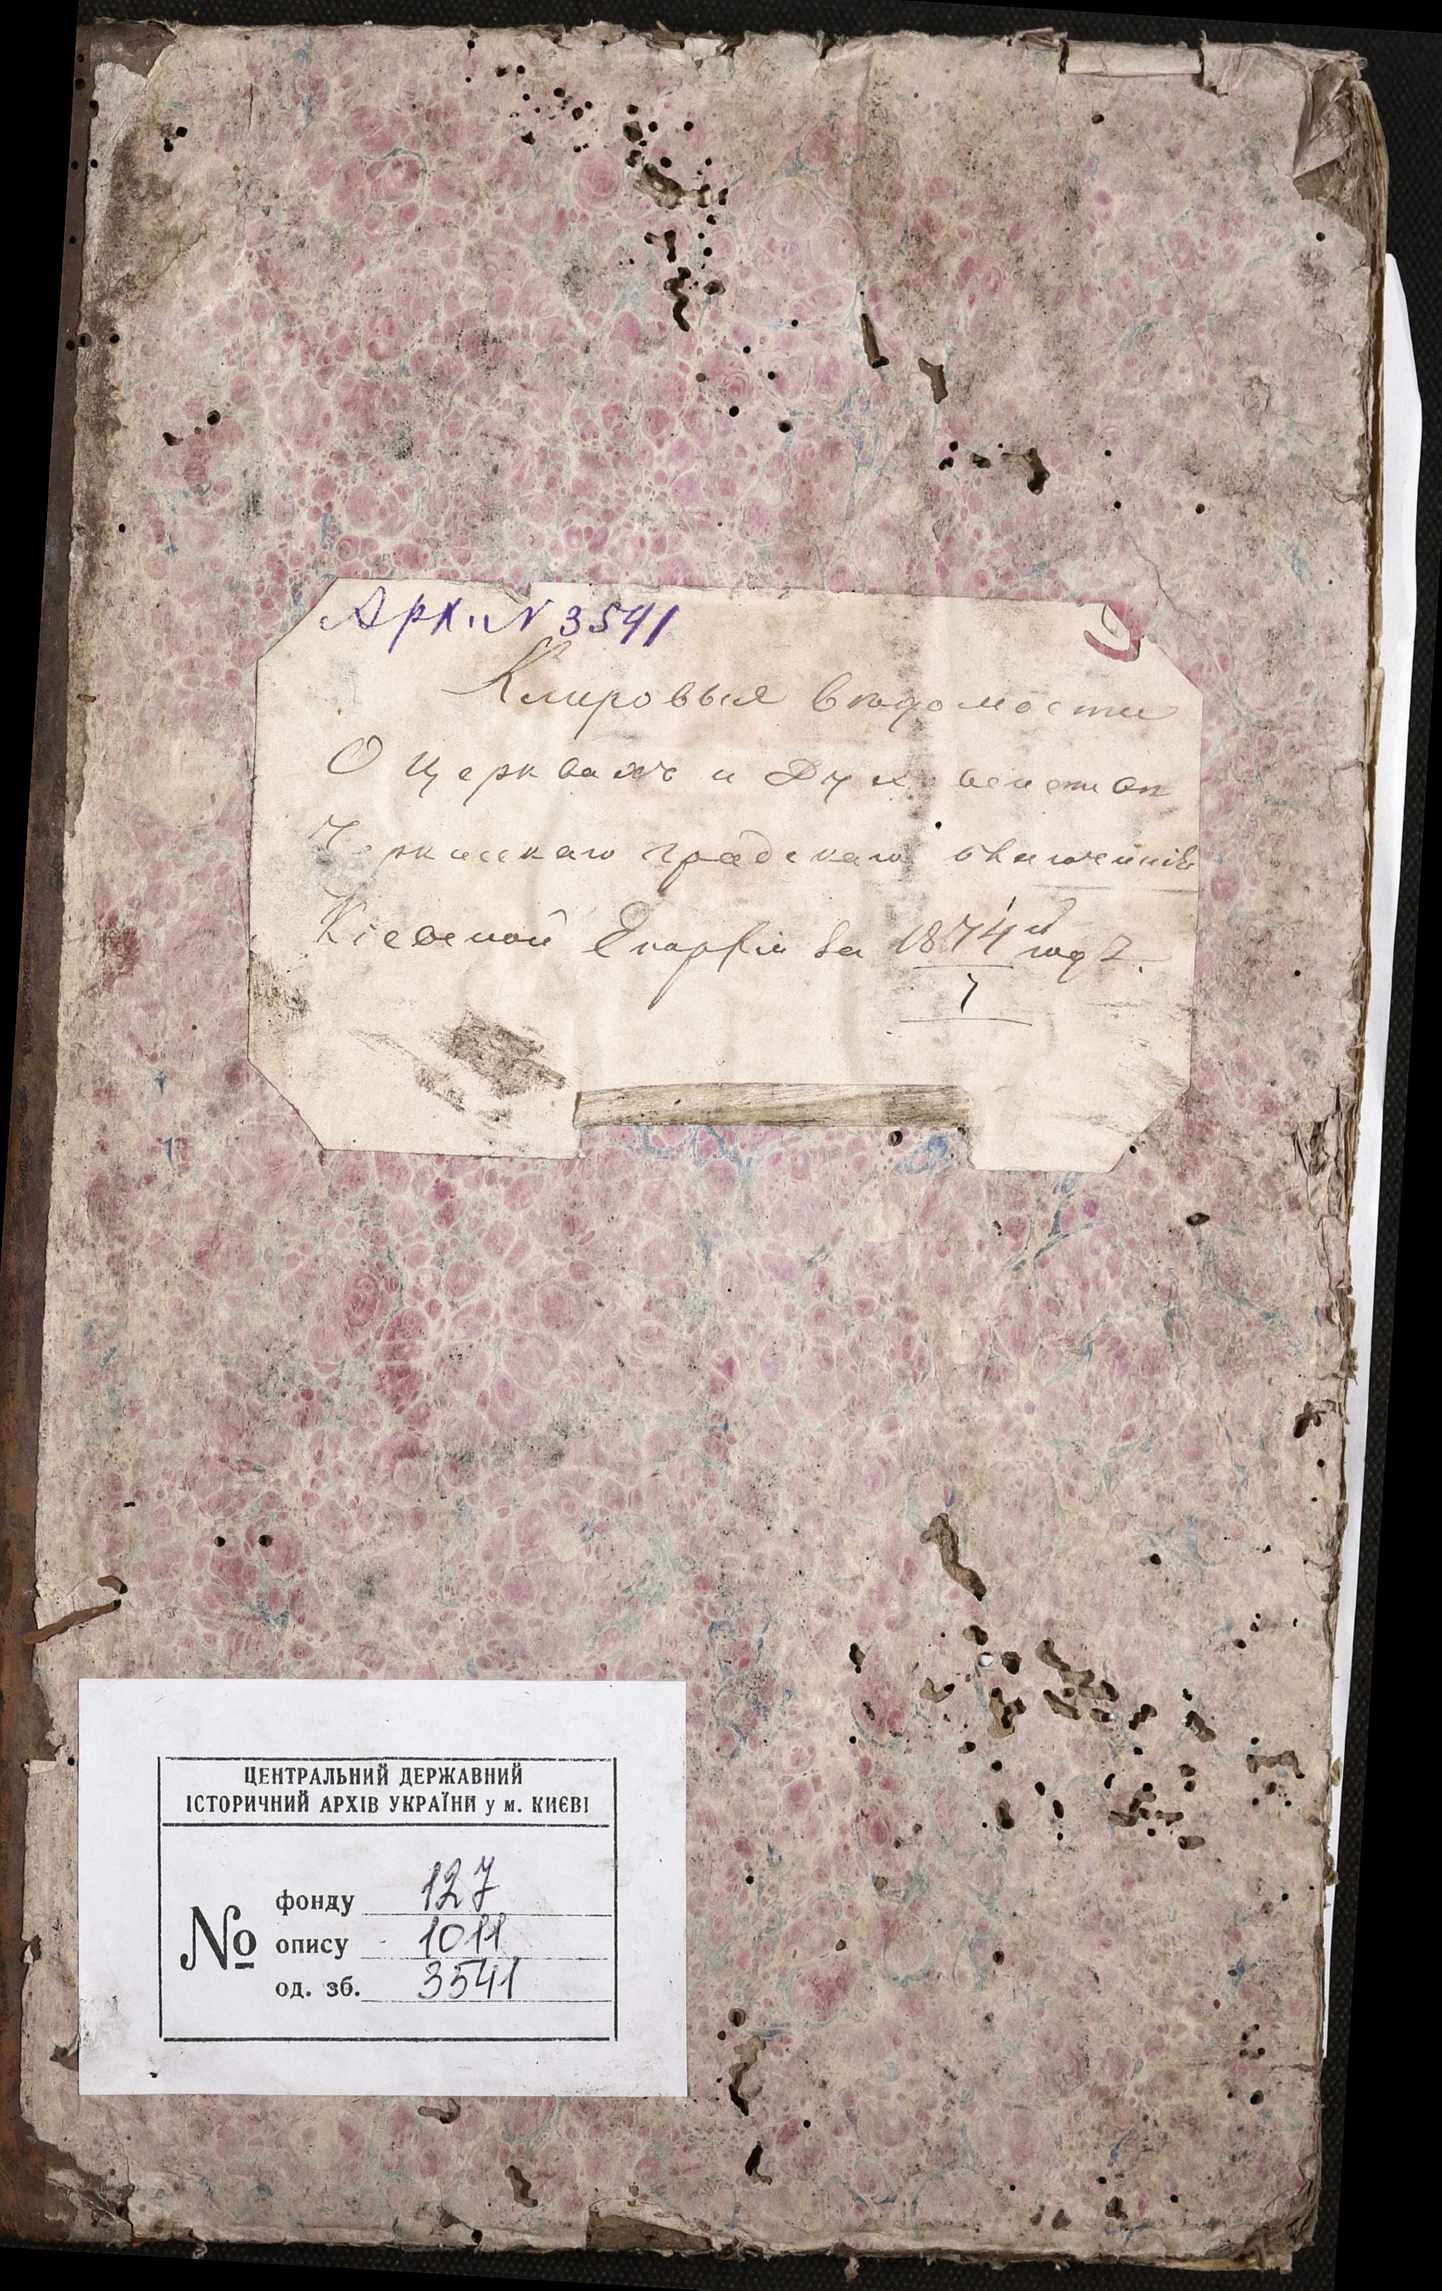 Арх. № 3541
Клировыя вѣдомости
О Церквахъ и Духовенствѣ
Черкасскаго градскаго
Кіевской Епархіи за 1874й годъ.
7
ЦЕНТРАЛЬНИЙ ДЕРЖАВНИЙ
ІСТОРИЧНИЙ АРХІВ УКРАЇНИ у м. КИЄВІ
№ фонду 127
опису 1011
од. зб. 3541